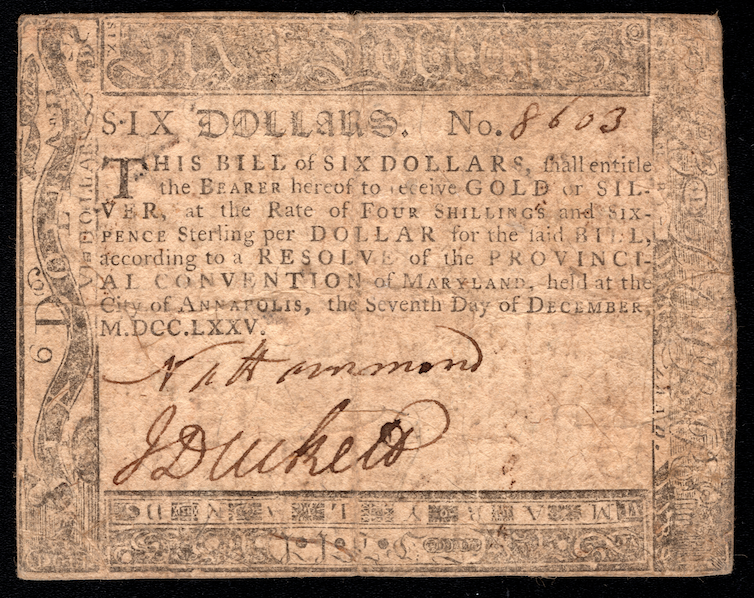 Six Dollars
SIX DOLLARS. No. 8603
THIS BILL of SIX DOLLARS, ſhall entitle
the BEARER hereof to receive GOLD or SIL-
VER, at the Rate of FOUR SHILLINGS and SIX-
PENCE Sterling per DOLLAR for the ſaid BILL,
according to a RESOLVE of the PROVINCI-
AL CONVENTION of MARYLAND, held at the
City of ANNAPOLIS, the Seventh Day of DECEMBER,
M.DCC.LXXV.
Nat Hammond
J Duckett
MARYLAND